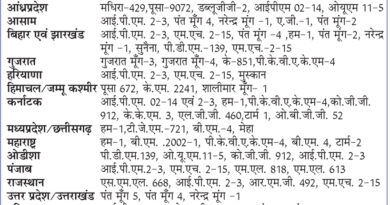 आंध्रप्रदेश मधिरा-429,पूसा-9072, डब्लूजीजी-2, आईपीएम 02-14, ओयूएम 11-5
आसाम आई.पी.एम. 2-3, पंत मूँग 4, नरेन्द्र मूंग -1, ए.जी.-1, पंत मूंग-2
बिहार एवं झारखंड आई.पी.एम. 2-3, एम.एच. 2-15, पंत मूंग -4 ,हम-1, पंत मूंग-2, नरेन्द्र
मूंग -1, सुनैना, पी.डी.एम.-139, एम.एच.-2-15
गुजरात गुजरात मूँग-3, गुजरात मूंग-4, के-851,पी.के.वी.ए.के.एम-4
हरियाणा आई.पी.एम.2-3, एम.एच. 2-15, मुस्कान
हिमाचल/जम्मू कश्मीर पूसा 672, के.एम. 2241, शालीमार मूंग- 1
कर्नाटक आई.पी.एम. 02-14 एवं 2-3, हम-1,पी.के.वी.ए.के.एम-4,को.जी.जी.
912, के.के.एम. 3, एल.जी.जी. 460,टार्म 1, ओ.बी.जी.जी. 52
मध्यप्रदेश/छत्तीसगढ़ हम-1,टी.जे.एम.-721, बी.एम.-4, मेहा
महाराष्ट्र हम-1, बी.एम. .2002-1, पी.के.वी.ए.के.एम-4, बी.एम. 4, टार्म-2
ओडीशा पी.डी.एम.139, ओ.यू.एम.11-5, को.जी.जी. 912, आई.पी.एम. 2-3
पंजाब आई.पी.एम.2-3, एम.एच. 2-15, एम.एल. 818, एम.एल. 613
राजस्थान एस.एम.एल. 668, आई.पी.एम. 2-3, आर.एम.जी. 492, एम.एच. 2-15
उत्तर प्रदेश/उत्तराखंड पंत मूँग 5, पंत मूंग 4, नरेन्द्र मूंग -1